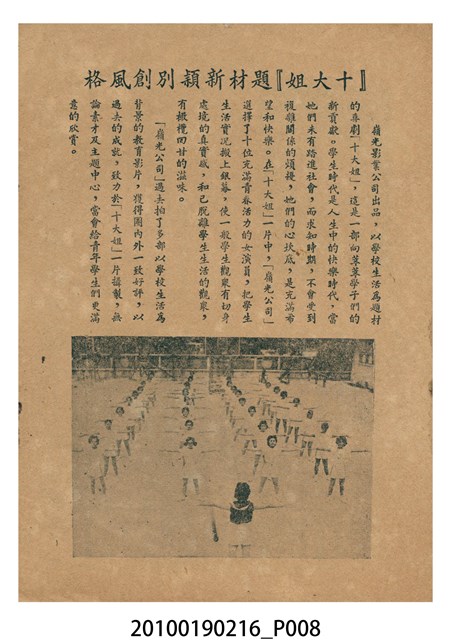 『十大姐』題材新穎別創風格
嶺光影業公司出品，以學校生活為題材
的喜劇「十大姐」，這是一部向莘莘學子們的
新貢獻。學生時代是人生中的快樂時代，當
她們未有踏進社會，而求知時期，不會受到
複雜關係的煩擾，她們的心坎底，是充滿希
望和快樂。在「十大姐」一片中，「嶺光公司」
選擇了十位充滿青春活力的女演員，把學生
生活實況搬上銀幕，使一般學生觀眾有切身
處境的真實感，和已脫離學生生活的觀眾，
有橄欖回甘的滋味。
「嶺光公司」過去拍了多部以學校生活為
背景的教育影片，獲得國內外一致好評，以
過去的成就，致力於「十大姐」一片攝製，無
論素才及主題中心，當會給青年學生們更滿
意的欣賞。
20100190216_P008